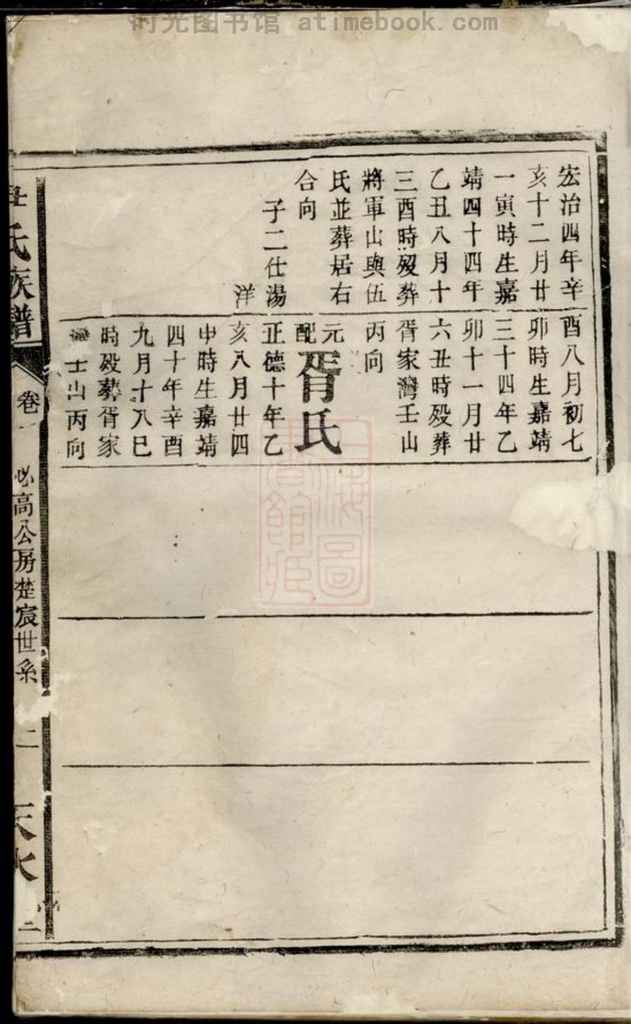 时光图书馆 atimebook.com
宏治四年辛
亥十二月廿
一寅時生嘉
靖四十四年
乙丑八月十
三酉時殁葬
將軍山與伍
氏並葬居右
合向
子二仕湯
洋
酉八月初七
卯時生嘉靖
三十四年乙
卯十一月廿
六丑時殁葬
胥家灣壬山
丙向
元配胥氏
正德十年乙
亥八月廿四
申時生嘉靖
四十年辛酉
九月十八巳
時殁葬胥家
灣壬山丙向
氏族譜
卷
必高公房楚宸世系
二
天水